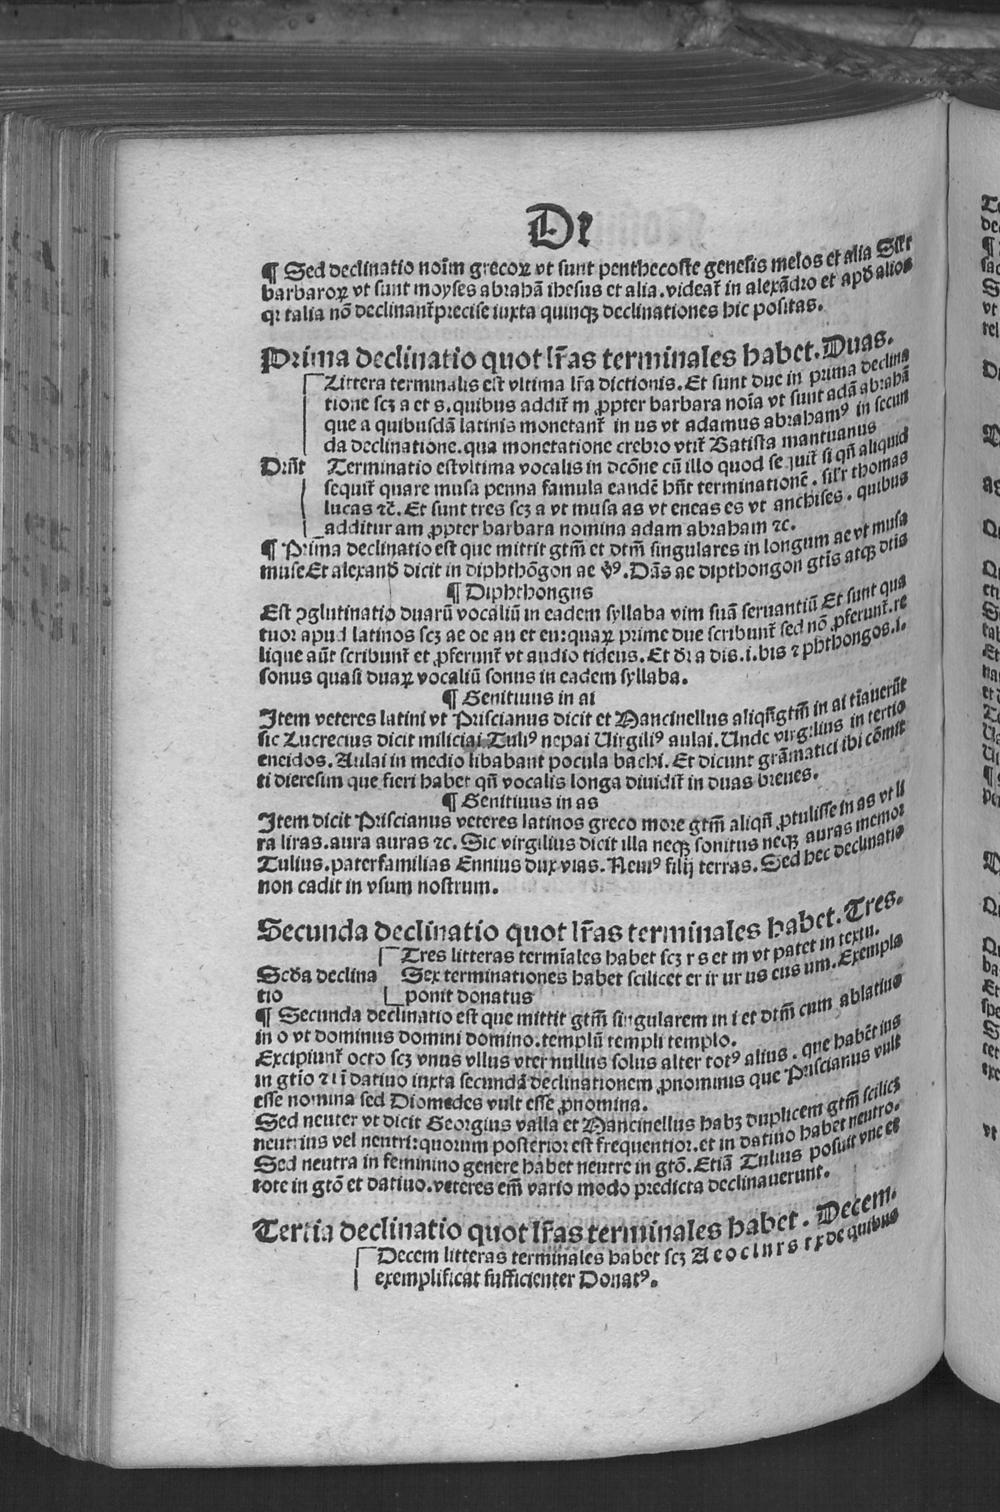 De
¶ Sed declinatio noīm grecoꝝ vt sunt penthecoste genesis melos et alia Silr̄
barbaroꝝ vt sunt moyses abrahā ihesus et alia. videat̄ in alexādro et apd̄ alios
qꝛ talia nō declinant̄ precise iuxta quinqꝫ declinationes hic positas.
Prima declinatio quot lr̄as terminales habet. Duas.
Littera terminalis est vltima lr̄a dictionis. Et sunt due in prima declina
tione scꝫ a et s. quibus addit̄ m ꝓpter barbara noīa vt sunt adā abrahā
que a quibusdā latinis monetant̄ in us vt adamus abrahamꝰ in secun
da declinatione. qua monetatione crebro vtit̄ Batista mantuanus
Driñt Terminatio est vltima vocalis in dcōne cū illo quod sequit̄ si qñ aliquid
sequit̄ quare musa penna famula eandē hñt terminationē. silr̄ thomas
lucas ⁊c̄. Et sunt tres scꝫ a vt musa as vt eneas es vt anchises. quibus
additur am ꝓpter barbara nomina adam abraham ⁊c.
¶ Prima declinatio est que mittit gtm̄ et dtm̄ singulares in longum ae vt musa
muse Et alexand̄ dicit in diphthōgon ae ꝟꝰ. Dās ae dipthongon gtīs atqꝫ dtis
¶ Diphthongus
Est ꝯglutinatio duarū vocaliū in eadem syllaba vim suā seruantiū Et sunt qua
tuor apud latinos scꝫ ae oe au et eu: quaꝝ prime due scribunt̄ sed nō ꝓferunt̄. re
lique aūt scribunt̄ et ꝓferunt̄ vt audio tideus. Et dr̄ a dis. i. bis ⁊ phthongos. i.
sonus quasi duaꝝ vocaliū sonus in eadem syllaba.
¶ Genitiuus in ai
Item veteres latini vt Priscianus dicit et Mancinellus aliqñ gtm̄ in ai tīauerūt
sic Lucrecius dicit miliciai Tuliꝰ nepai Uirgiliꝰ aulai. Unde virgilius in tertio
eneidos. Aulai in medio libabant pocula bachi. Et dicunt grāmatici ibi cōmit
ti dieresim que fieri habet qñ vocalis longa diuidit̄ in duas breues.
¶ Genitiuus in as
Item dicit Priscianus veteres latinos greco more gtm̄ aliqñ ꝓtulisse in as vt li
ra liras. aura auras ⁊c. Sic virgilius dicit illa neqꝫ sonitus neqꝫ auras memor
Tulius. paterfamilias Ennius dux vias. Nemꝰ filij terras. Sed hec declinatio
non cadit in vsum nostrum.
Secunda declinatio quot lr̄as terminales habet. Tres.
Tres litteras termīales habet scꝫ r s et m vt patet in textu.
Scd̄a declina Sex terminationes habet scilicet er ir ur us eus um. Exempla
tio ponit donatus
¶ Secunda declinatio est que mittit gtm̄ singularem in i et dtm̄ cum ablatiuo
in o vt dominus domini domino. templū templi templo.
Excipiunt̄ octo scꝫ vnus vllus vter nullus solus alter totꝰ alius. que habēt ius
in gtīo ⁊ i ī datiuo iuxta secundā declinationem ꝓnominis que Priscianus vult
esse nomina sed Diomedes vult esse ꝓnomina.
Sed neuter vt dicit Georgius valla et Mancinellus habꝫ duplicem gtm̄ scilicꝫ
neutrius vel neutri: quorum posterior est frequentior. et in datiuo habet neutro.
Sed neutra in feminino genere habet neutre in gtō. Etiā Tulius posuit vne et
tote in gtō et datiuo. veteres em̄ vario modo predicta declinauerunt.
Tertia declinatio quot lr̄as terminales habet. Decem.
Decem litteras terminales habet scꝫ A e o c l n r s t x de quibus
exemplificat sufficienter Donatꝰ.